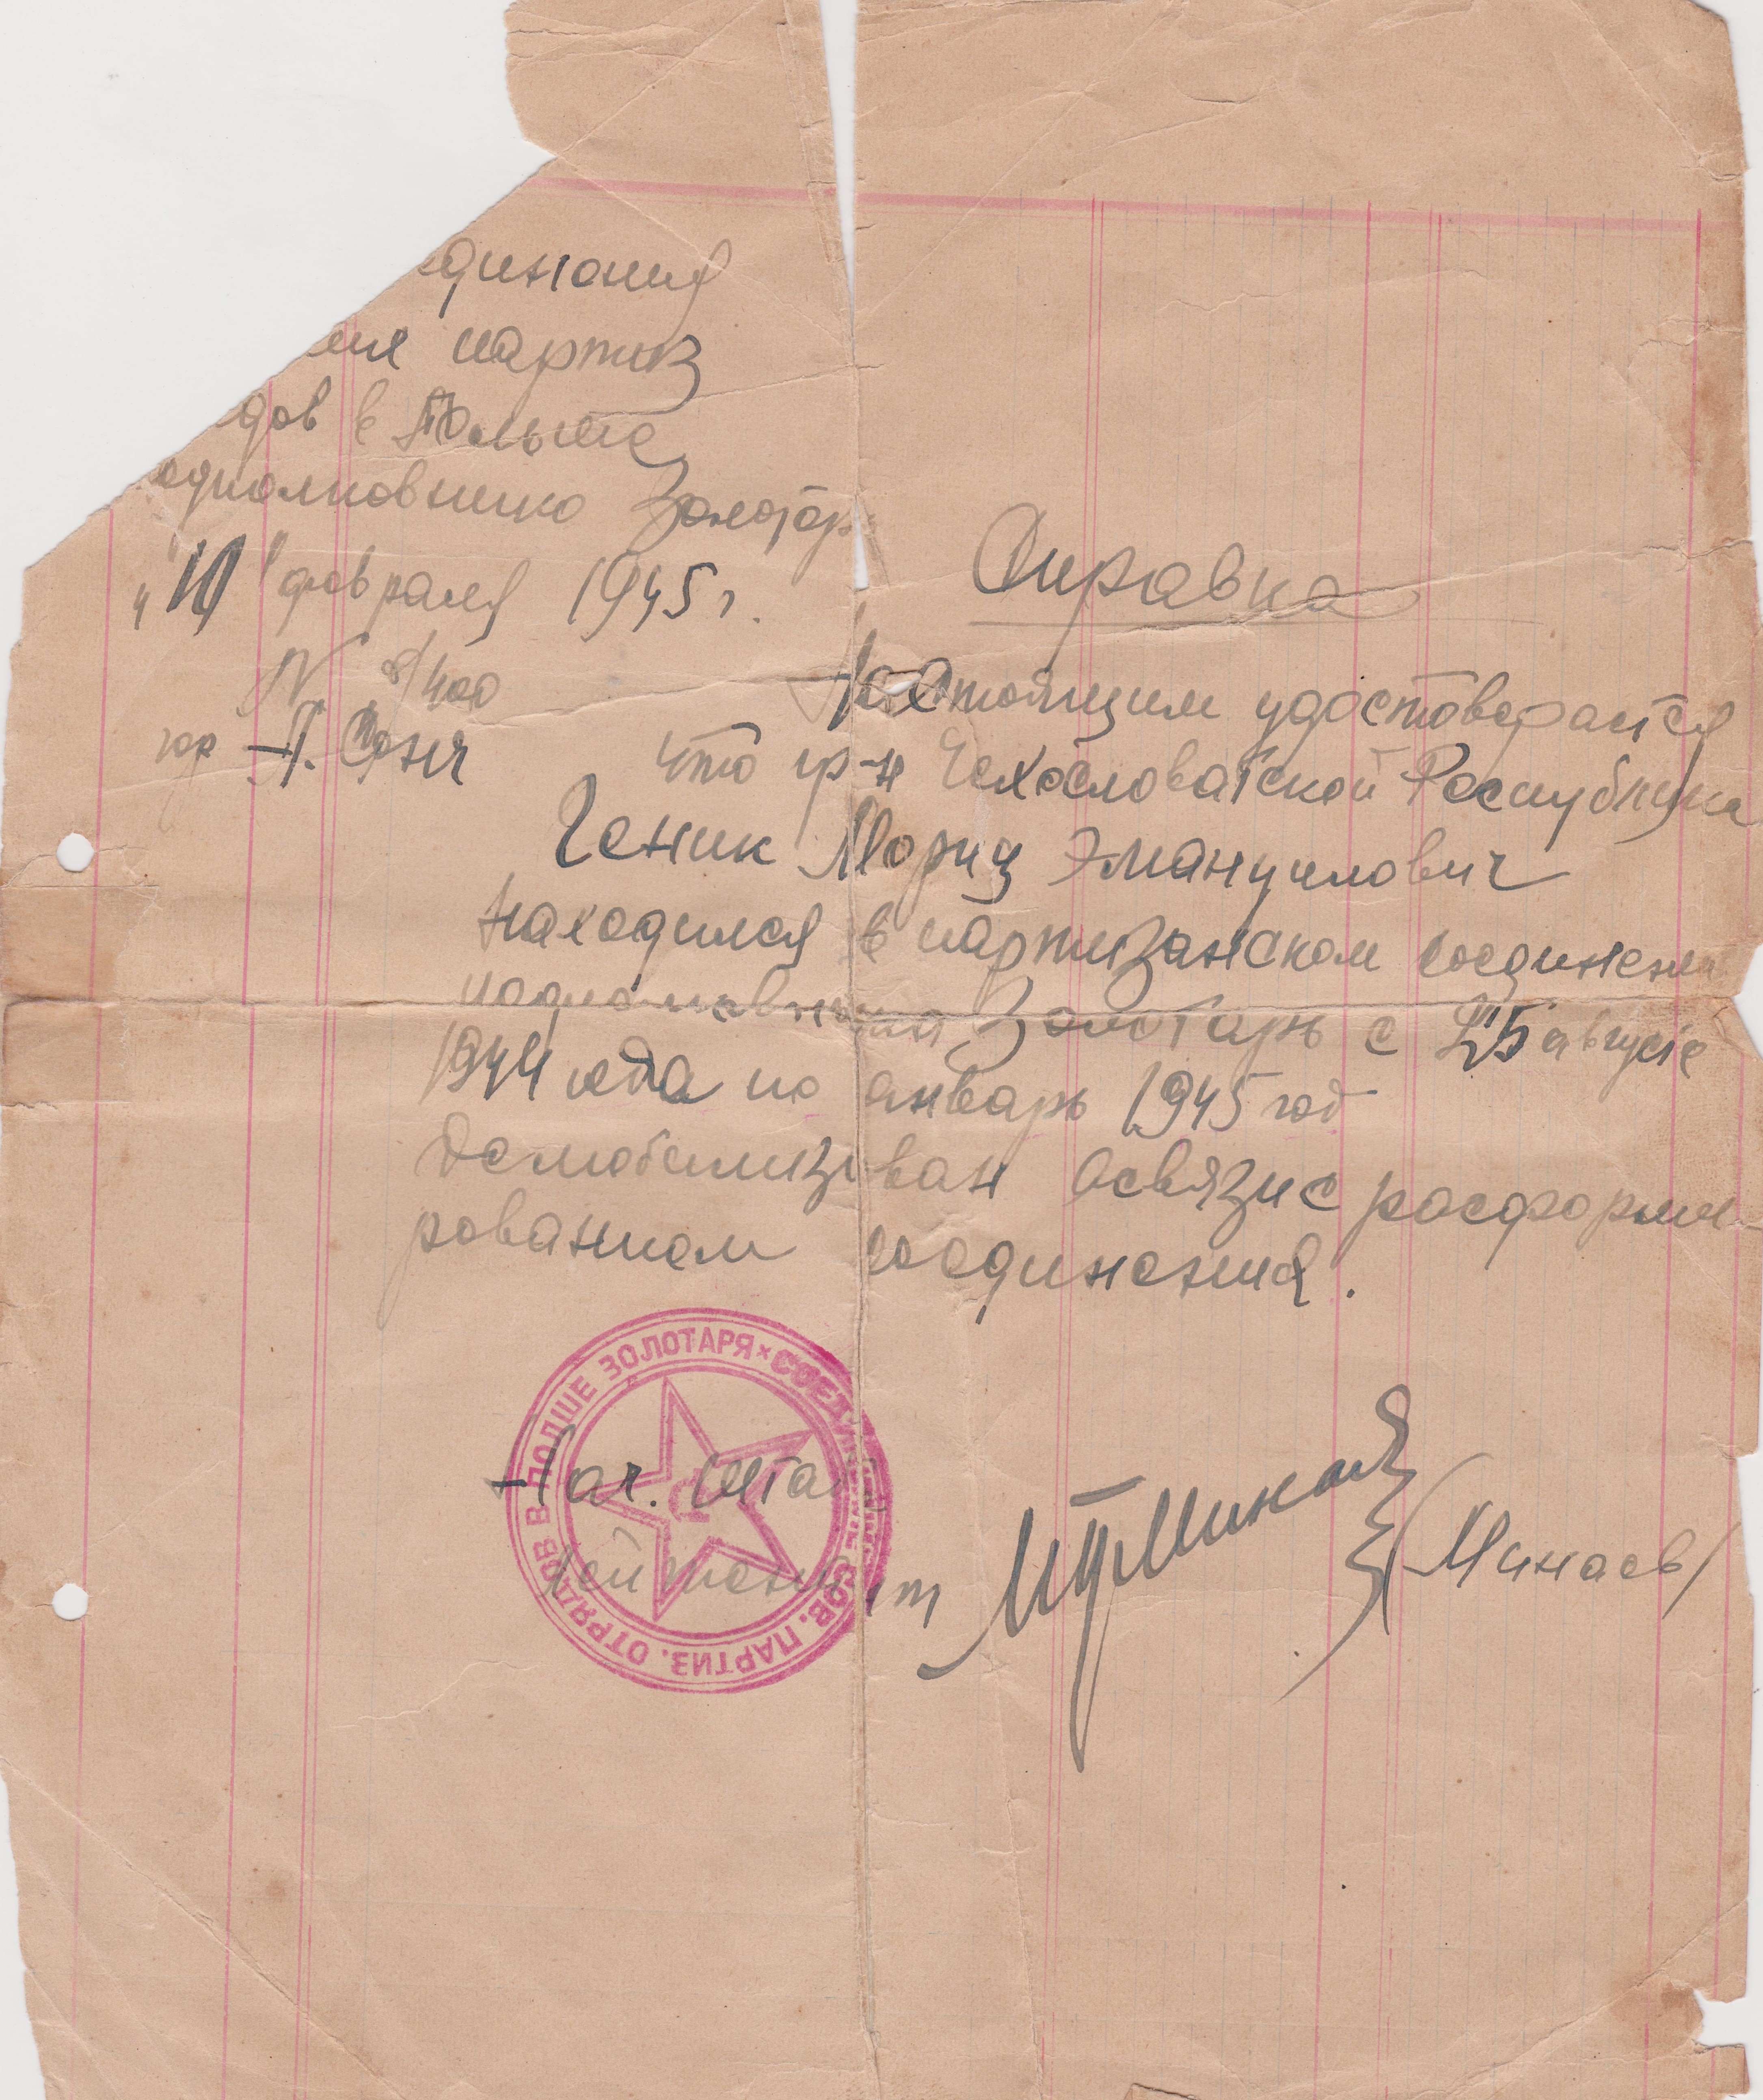 единения
партиз
дов в Польше
одполковника Золотар
"10" февраля 1945 г.
N
гор Н. Сонч
Справка
Настоящим удостоверается
что гр-н Чехословатской Республики
Геник Мориц Эмануилович
находился в партизанском соединени
подполковника Золотарь с 25 августа
1944 года по январь 1945 год
Демобилизован всвязи с расформи
рованием соединения.
СОЕДИНЕНИЕ СОВ. ПАРТИЗ. ОТРЯДОВ В ПОЛШЕ ЗОЛОТАРЯ ×
Нач. Шта
лейтенант
(Минаев)